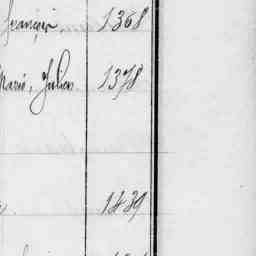 François, 1368
Marie, Julien 1378
1439